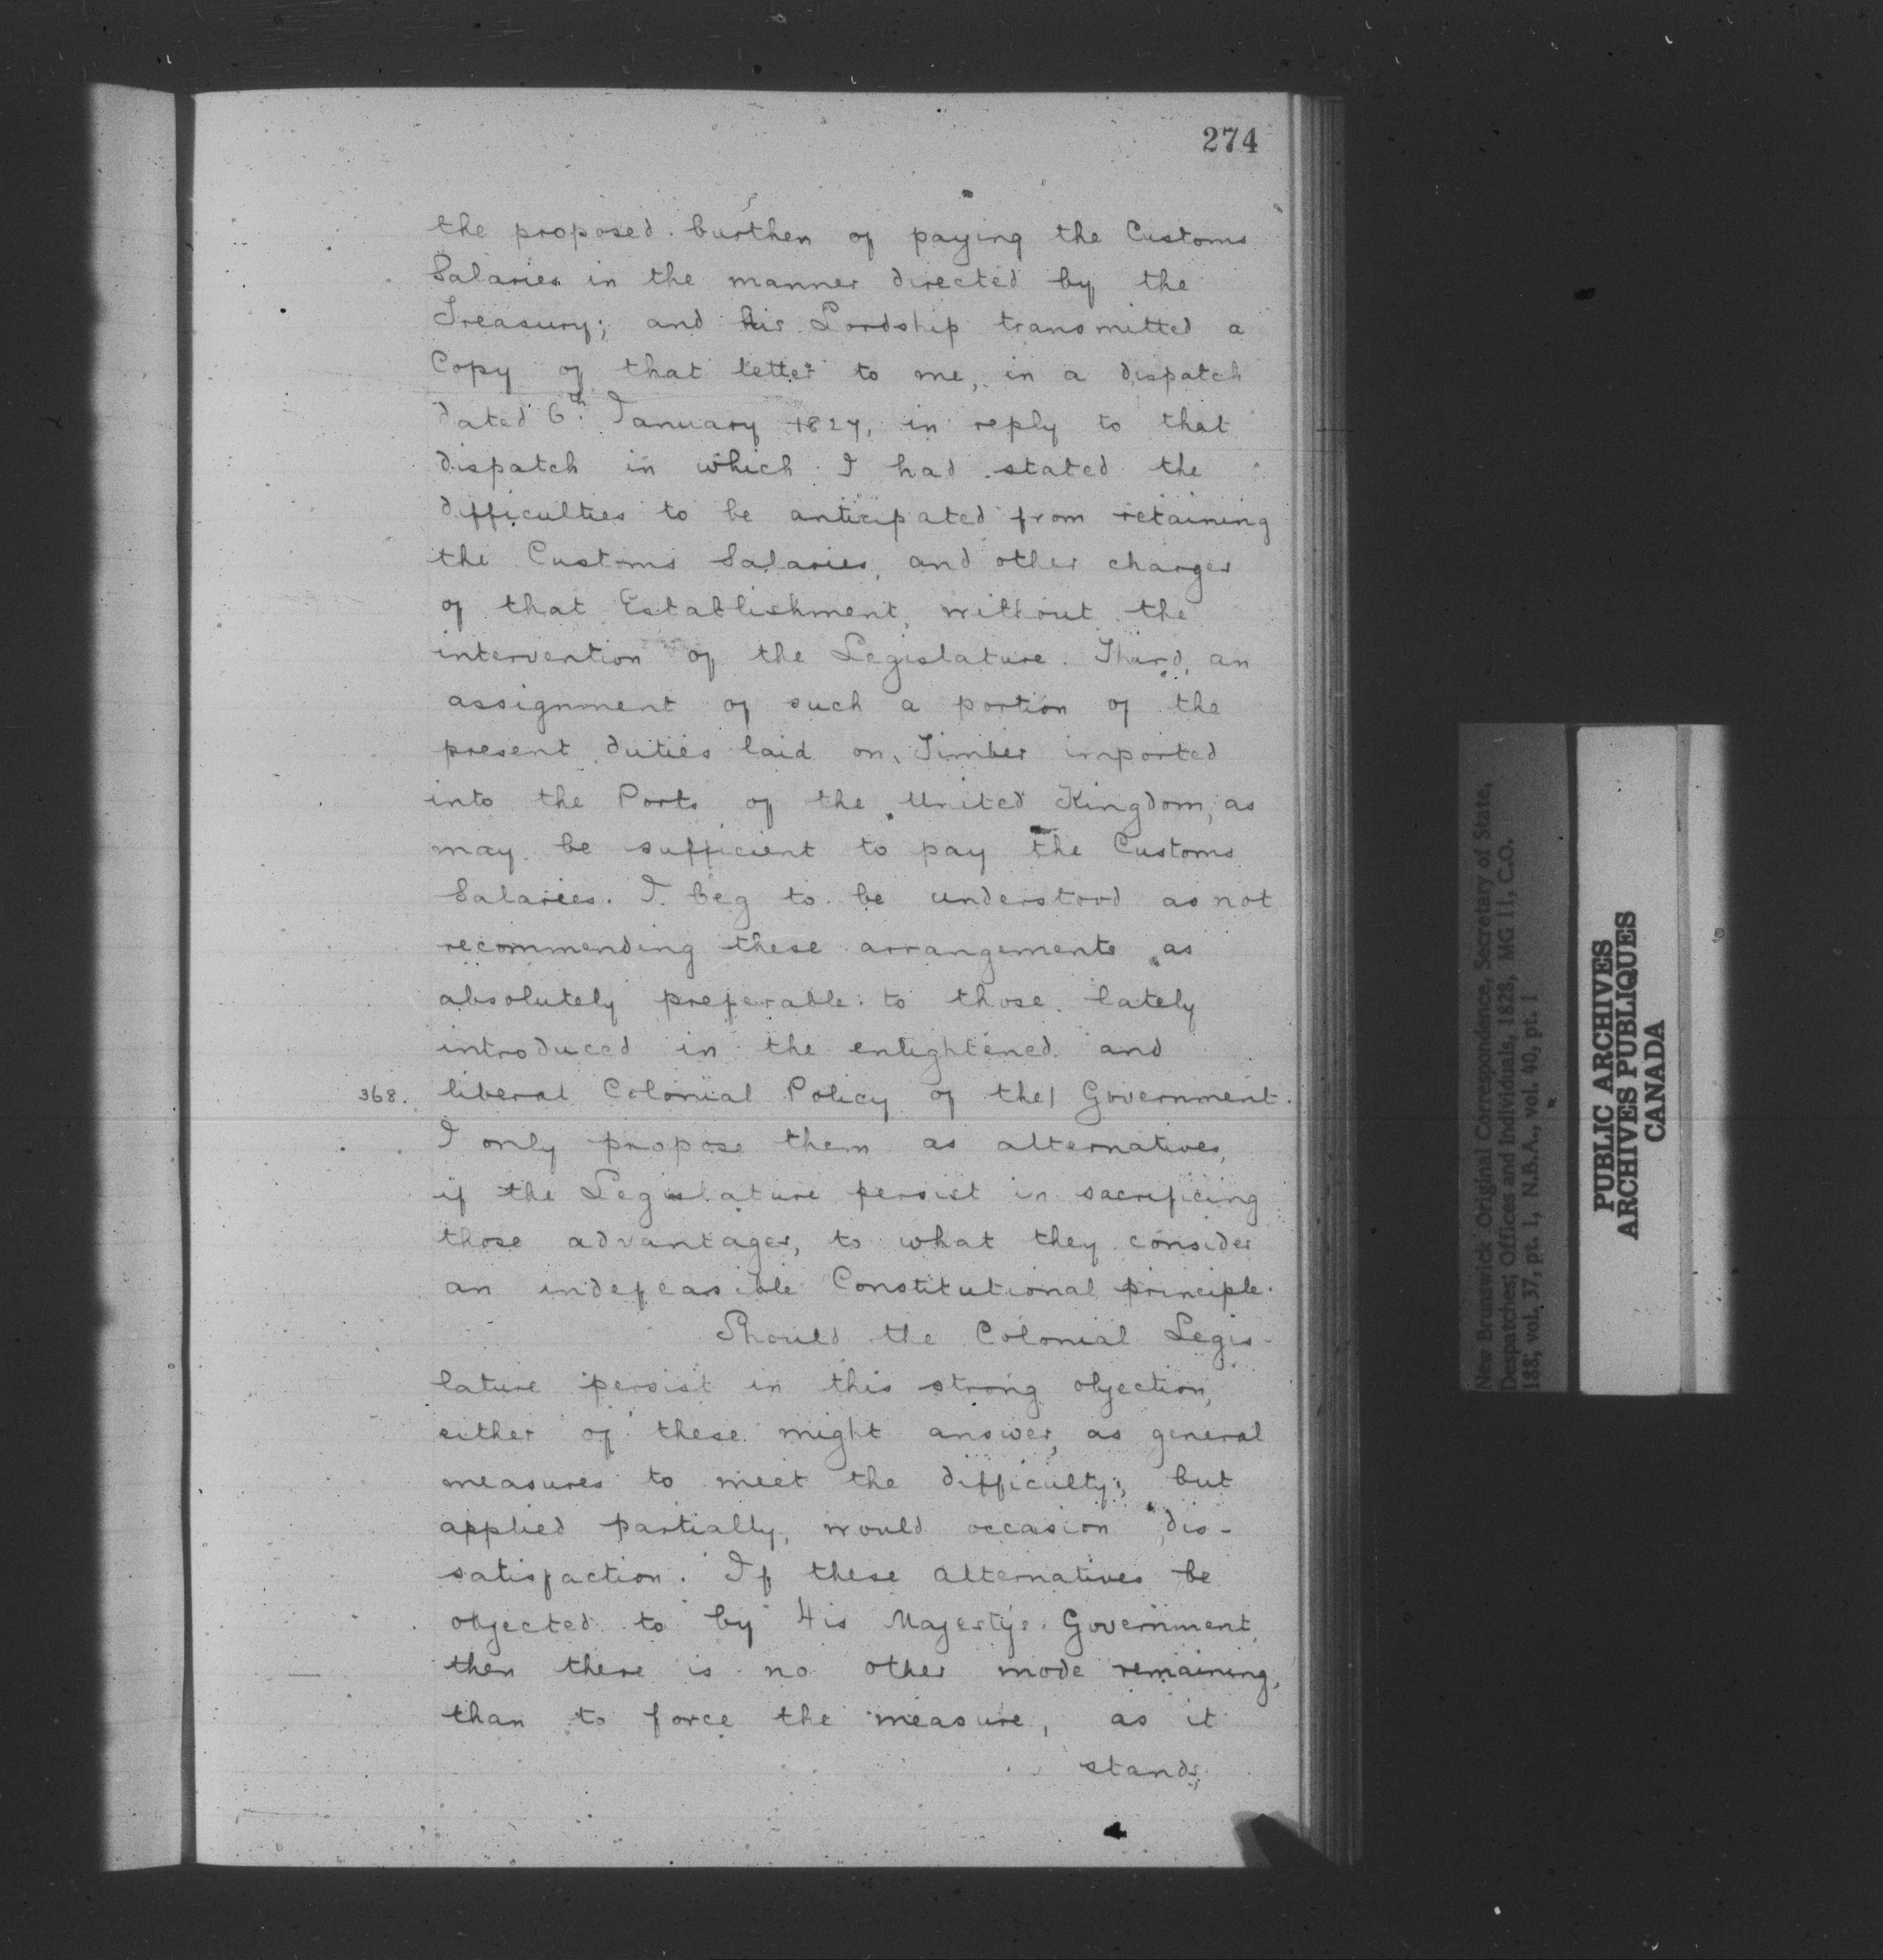 274
the proposed burthen of paying the Customs
Salaries in the manner directed by the
Treasury; and his Lordship transmitted a
Copy of that letter to me, in a dispatch
dated 6th January 1827, in reply to that
dispatch in which I had stated the
difficulties to be anticipated from retaining
the Customs Salaries, and other charges
of that Establishment, without the
intervention of the Legislature. Third, an
assignment of such a portion of the
present duties laid on Timber imported
into the Ports of the United Kingdom, as
may be sufficient to pay the Customs
Salaries. I beg to be understood as not
recommending these arrangements as
absolutely preferable to those lately
introduced in the enlightened and
368. liberal Colonial Policy of the/ Government.
I only propose them as alternatives,
if the Legislature persist in sacrificing
those advantages, to what they consider
an indefeasible Constitutional principle.
Should the Colonial Legis-
lature persist in this strong objection,
either of these might answer, as general
measures to meet the difficulty; but
applied partially, would occasion dis-
satisfaction. If these alternatives be
objected to by His Majesty's Government,
then there is no other mode remaining,
than to force the measure, as it
stands,
New Brunswick Original Correspondence, Secretary of State,
Despatches; Offices and Individuals, 1828, MG 11, C.O.
188; vol. 37, pt. 1, N.B.A., vol. 40, pt. 1
PUBLIC ARCHIVES
ARCHIVES PUBLIQUES
CANADA